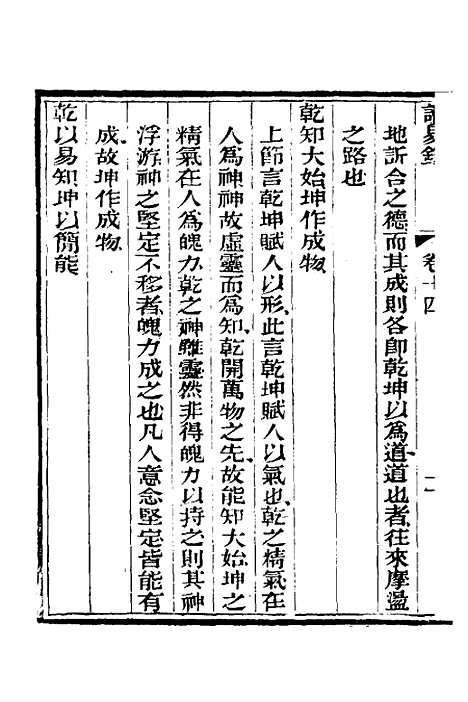 易
卷十四
二
地訢合之德而其成則各卽乾坤以爲道道也者往來摩盪
之路也
乾知大始坤作成物
上節言乾坤賦人以形此言乾坤賦人以氣也乾之精氣在
人爲神神故虛靈而爲知乾開萬物之先故能知大始坤之
精氣在人爲魄力乾之神雖靈然非得魄力以持之則其神
浮游神之堅定不移者魄力成之也凡人意念堅定皆能有
成故坤作成物
乾以易知坤以簡能